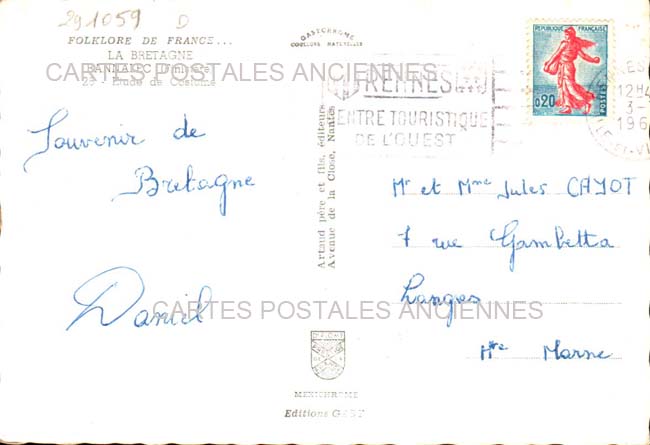 291059 D
FOLKLORE DE FRANCE...
LA BRETAGNE
BANNALEC (Finistère)
29 - Etude de Costume
CARTES POSTALES ANCIENNES
GASTCHROME
COULEURS NATURELLES
RENNES
CENTRE TOURISTIQUE
DE L'OUEST
REPUBLIQUE FRANÇAISE
0,20
POSTES
RENNES
12H4
3-
196
Souvenir de
Bretagne
Daniel
Artaud père et fils, éditeurs
Avenue de la Close, Nantes
Mr et Mme Jules CAYOT
7 rue Gambetta
Langres
Hte Marne
CARTES POSTALES ANCIENNES
MEXICHROME
Editions GABY